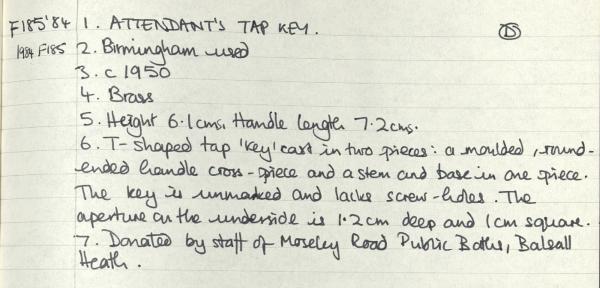 F185'84 1. ATTENDANT'S TAP KEY. D
1984 F185 2. Birmingham used
3. c 1950
4. Brass
5. Height 6.1cms. Handle length 7.2cms.
6. T-shaped tap 'key' cast in two pieces: a moulded, round-
ended handle cross-piece and a stem and base in one piece.
The key is unmarked and lacks screw-holes. The
aperture on the underside is 1.2cm deep and 1cm square.
7. Donated by staff of Moseley Road Public Baths, Balsall
Heath.